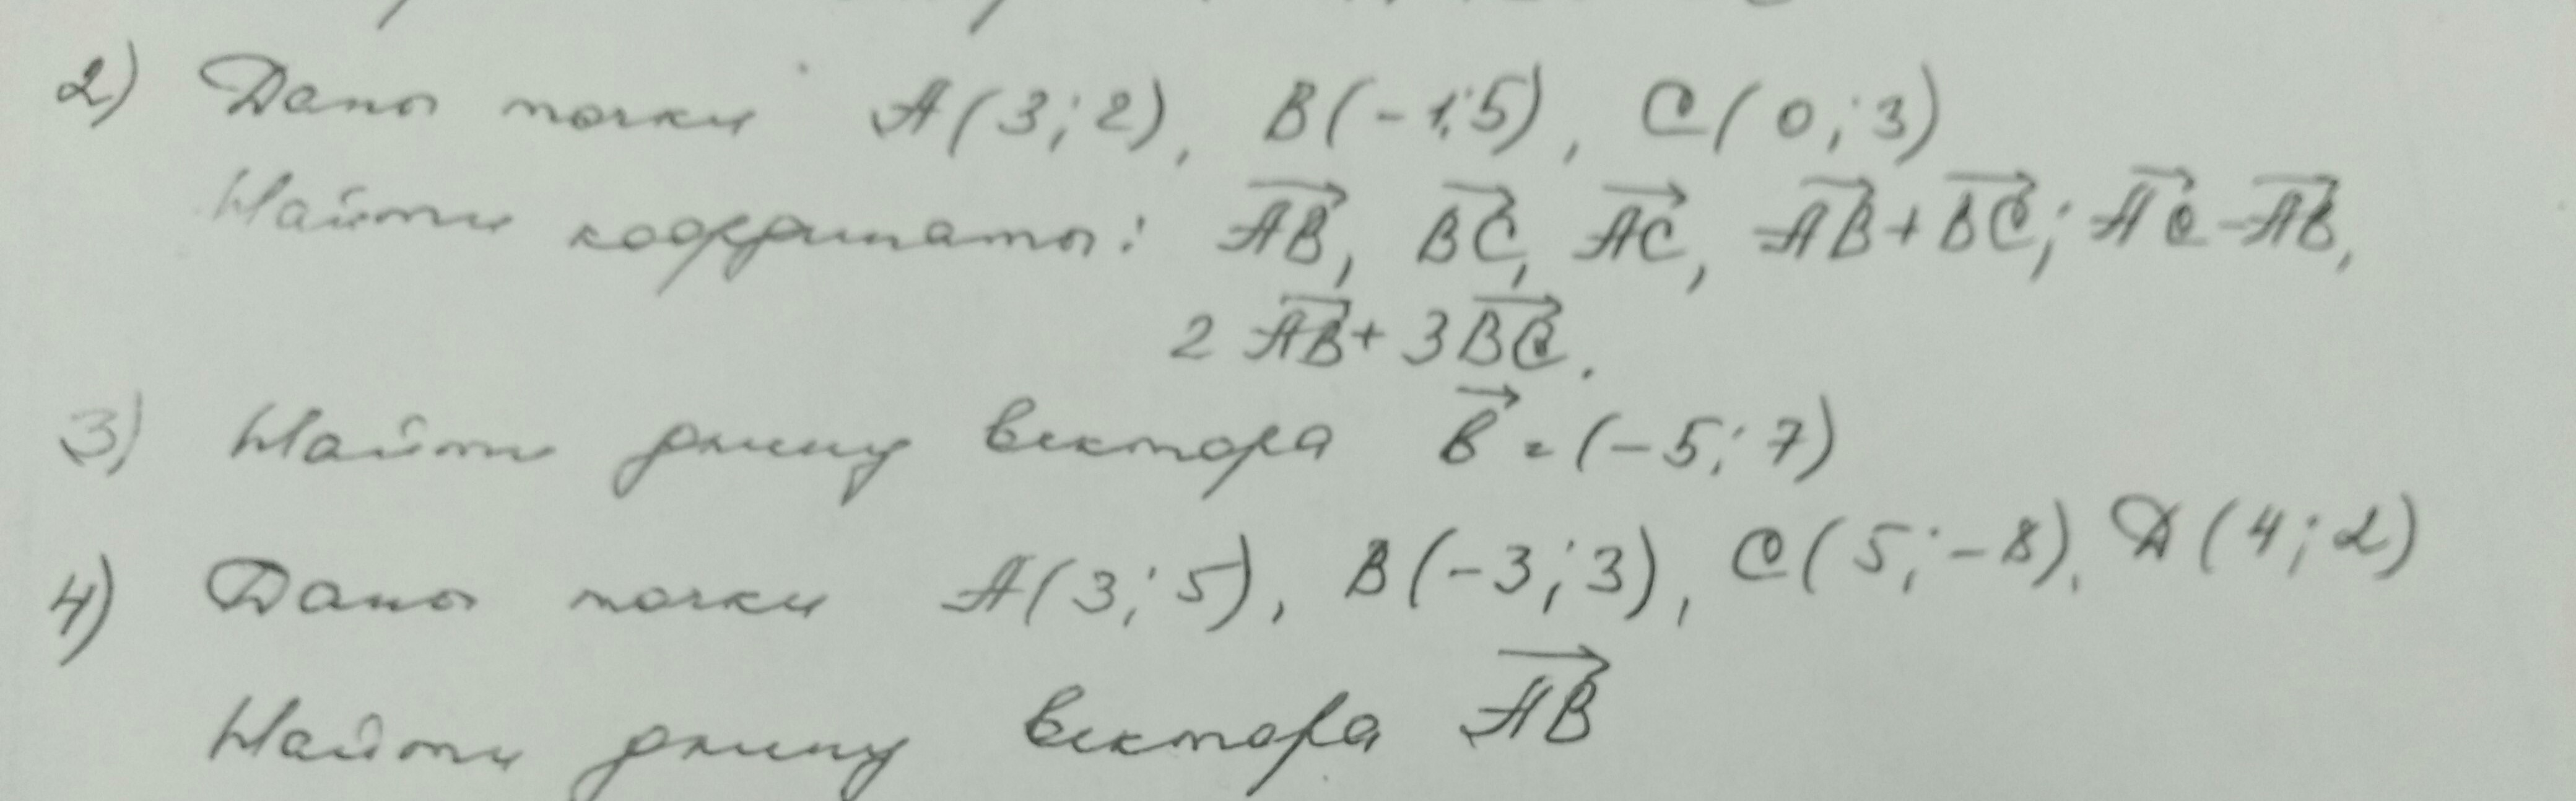 2) Даны точки A(3;2), B(-1;5), C(0;3)
Найти координаты: AB, BC, AC, AB+BC; AC-AB,
2 AB+ 3BC.
3) Найти длину вектора b = (-5;7)
4) Даны точки A(3;5), B(-3;3), C(5;-8), Д(4;2)
Найти длину вектора AB